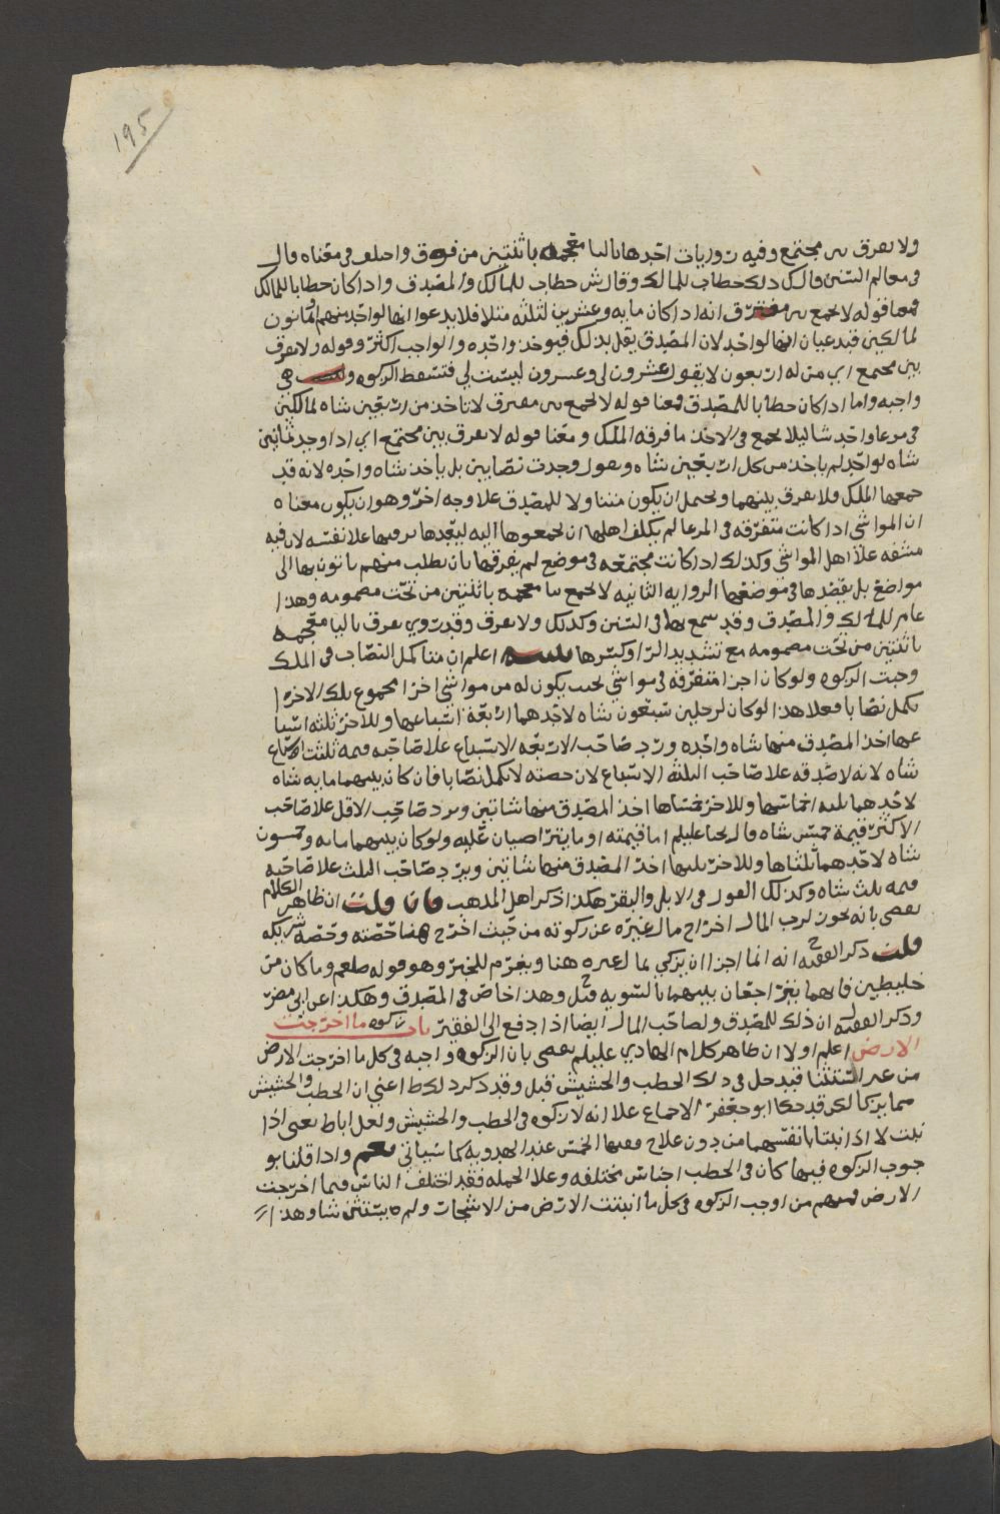 ١٩٥
ولا يفرق بين مجتمع وفيه روايات احدها باليا معجمه باثنتين من فوق واختلف في معناه قال
في معالم السنن قال ك ذلك خطاب للمالك وقال ش خطاب للمالك والمصدق واذا كان خطابا للمالك
فمعنا قوله لا يجمع بين مفترق انه اذا كان مايه وعشرين لثلثه مثلا فلا يدعوا انها لواحد منهم او ثمانون
لمالكين قيد عيان انها لواحد لان المصدق يقل بذلك فيوخذ واحده والواجب اكثر وقوله ولا يفرق
بين مجتمع اي من له اربعون لا يقول عشرون لي وعشرون ليست لي فتسقط الزكوه وهي
واجبه واما اذا كان خطابا للمصدق فمعنا قوله لا يجمع بين مفترق لا تاخذ من اربعين شاه لمالكين
في مرعا واحد شا ليلا يجمع في الاخذ ما فرقه الملك ومعنا قوله لا يفرق بين مجتمع اي اذا وجد ثمانين
شاه لواحد لم ياخذ من كل اربعين شاه ويقول وجدت نصابين بل ياخذ شاه واحده لانه قد
جمعها الملك فلا يفرق بينهما ويحتمل ان يكون متناولا للمصدق علا وجه اخر وهو ان يكون معناه
ان المواشي اذا كانت متفرقه في المرعا لم يكلف اهلها ان يجمعوها اليه ليعدها بل علا نفسه لان فيه
مشقه علا اهل المواشي وكذلك اذا كانت مجتمعه في موضع لم يفرقها بان يطلب منهم ياتون بها الى
مواضع بل يقصدها في موضعها الروايه الثانيه لا يجمع بيا معجمه باثنتين من تحت مضمومه وهذا
عام للمالك والمصدق وقد سمع بها في السنن وكذلك ولا يفرق وقد روي يفرق باليا معجمه
باثنتين من تحت مضمومه مع تشديد الرا وكسرها تنبيه اعلم ان متا كمل النصاب في الملك
وجبت الزكوه ولو كان اجزا متفرقه في مواشي بحيث يكون له من مواشي اخرا مجموع تلك الاجزا
تكمل نصابا فعلا هذا لو كان لرجلين سبعون شاه لاحدهما اربعة اسباعها وللاخر ثلثه اسبا
عها اخذ المصدق منها شاه واحده ورد صاحب الاربعه الاسباع علا صاحبه قيمه ثلثت اسباع
شاه لانه لا صدقه علا صاحب الثلثه الاسباع لان حصته لا تكمل نصابا فان كان بينهما مايه شاه
لاحدهما ثلثه اخماسها وللاخر خمساها اخذ المصدق منها شاتين ويرد صاحب الاقل علا صاحب
الاكثر قيمة خمس شاه قال يحيا عليلم اما قيمته او ما يتراضيان عليه ولو كان بينهما مايه وخمسون
شاه لاحدهما ثلثاها وللاخر ثلثها اخذ المصدق منها شاتين ويرد صاحب الثلث علا صاحبه
قيمه ثلث شاه وكذلك القول في الابل والبقر هكذا ذكر اهل المذهب فان قلت ان ظاهر الكلام
يقضي بانه يجوز لرب المال اخراج مال غيره عن زكوته من حيث اخرج هنا حصته وحصة شريكه
قلت ذكر الفقيه ح انه انما اجزا ان يزكي بما لغيره هنا ويغرم للخبر وهو قوله صلعم وما كان من
خليطين فانهما يتراجعان بينهما بالسويه قيل وهذا خاص في المصدق وهكذا عن ابي مضر
وذكر الفقيه ل ان ذلك للمصدق ولصاحب المال ايضا اذا دفع الى الفقير باب زكوه ما اخرجت
الارض اعلم اولا ان ظاهر كلام الهادي عليلم يقضي بان الزكوه واجبه في كل ما اخرجت الارض
من غير استثنا فيدخل في ذلك الحطب والحشيش قيل وقد ذكر ذلك ط اعني ان الحطب والحشيش
مما يزكا لكن قد حكا ابو جعفر الاجماع علا انه لا زكوه في الحطب والحشيش ولعل اباط يعني اذا
نبت لا اذا نبتا بانفسهما من دون علاج ففيها الخمس عند الهدويه كما سياتي نعم واذا قلنا بو
جوب الزكوه فيها كان في الحطب اجناس مختلفه وعلا الجمله فقد اختلف الناس فيما اخرجت
الارض فمنهم من اوجب الزكوه في كل ما انبتت الارض من الاشجار ولم يستثن شا وهذا